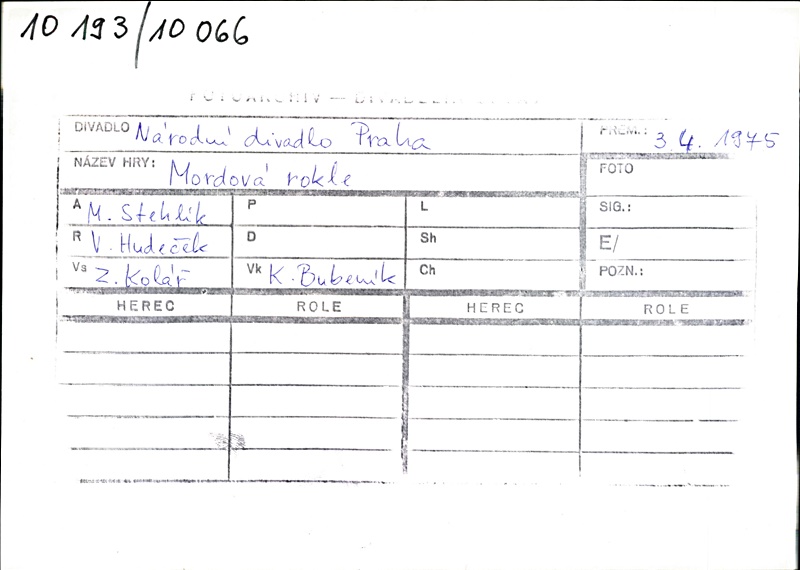 10 193/10 066
FOTOARCHIV — DIVADELNÍ
DIVADLO Národní divadlo Praha PREM.: 3 4. 1975
NÁZEV HRY: Mordová rokle FOTO
A M. Stehlík P L SIG.:
R V. Hudeček D Sh E/
Vs Z. Kolář Vk K. Bubeník Ch POZN.:
HEREC ROLE HEREC ROLE